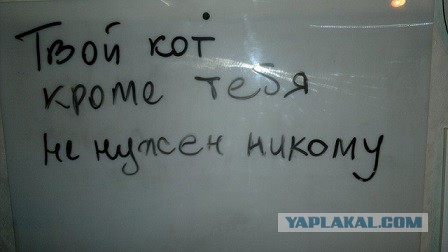 Твой кот
кроме тебя
не нужен никому
YAPLAKAL.COM